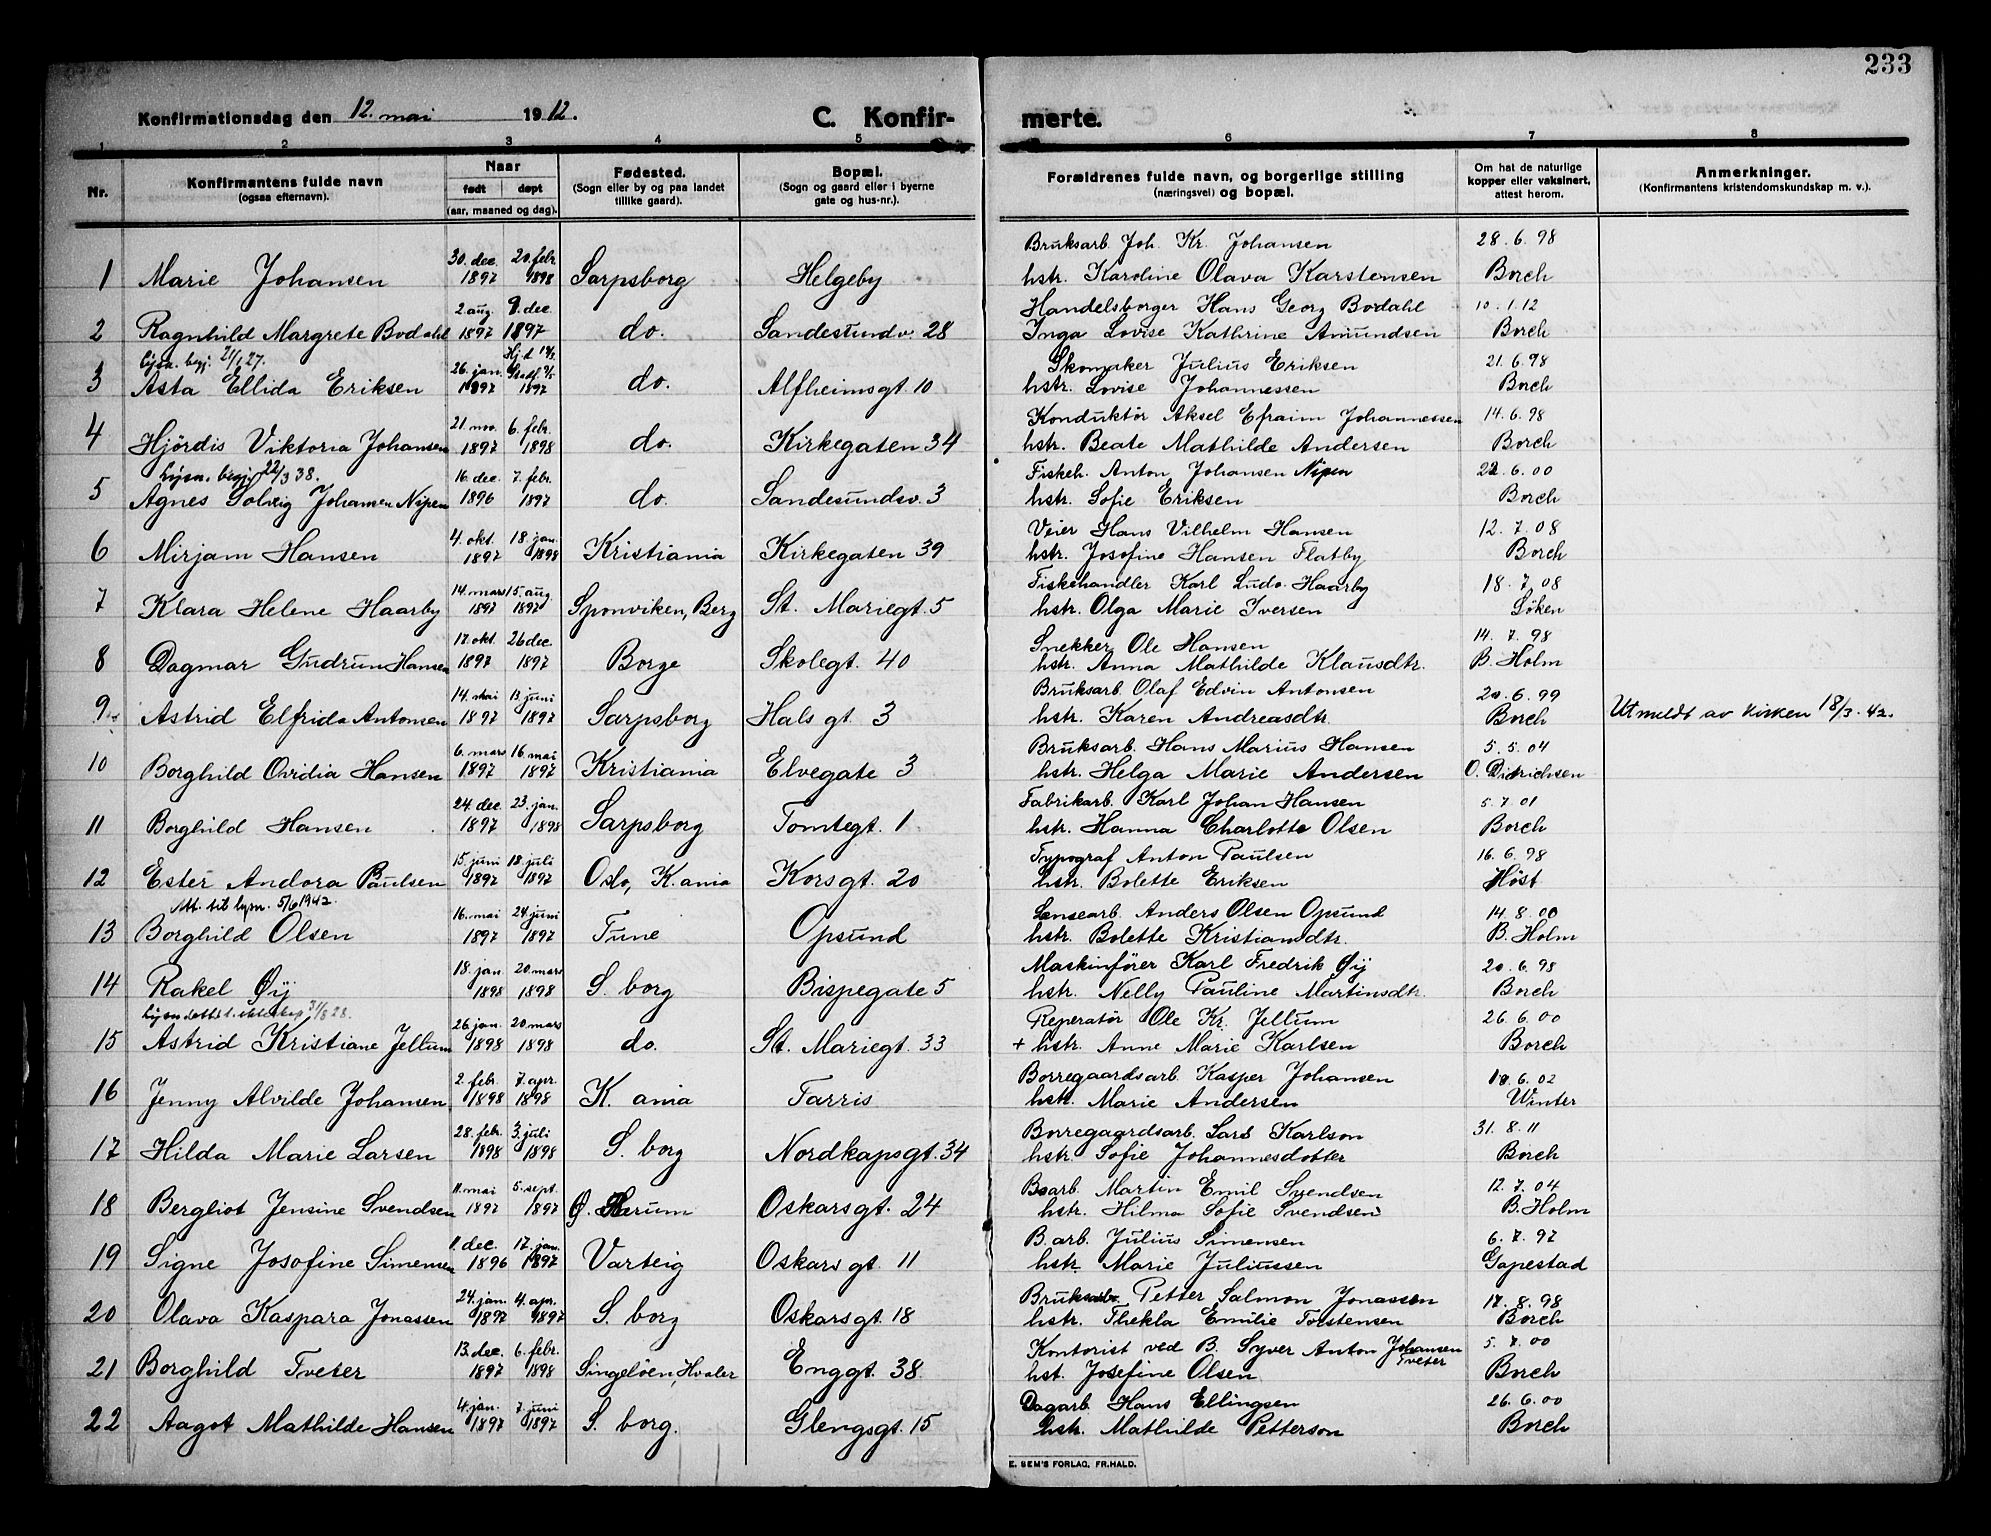 233
Konfirmationsdag den 12. mai 1912.
C. Konfir- merte.
1 2 3 4 5 6 7 8
Nr. Konfirmantens fulde navn (ogsaa efternavn). Naar født døpt (aar, maaned og dag). Fødested. (Sogn eller by og paa landet tillike gaard). Bopæl. (Sogn og gaard eller i byerne gate og hus-nr.). Forældrenes fulde navn, og borgerlige stilling (næringsvei) og bopæl. Om hat de naturlige kopper eller vaksinert, attest herom. Anmerkninger. (Konfirmantens kristendomskundskap m. v.).
30. dec. 20. febr. Bruksarb. Joh. Kr. Johansen 28.6.98
1 Marie Johansen 1897 1898 Sarpsborg Helgeby hstr. Karoline Olava Karstensen Borch
2. aug. 9. dec. Handelsborger Hans Georg Bodahl 10.1.12
2 Ragnhild Margrete Bodahl 1897 1897 do. Sandesundv. 28 Inga Lovise Kathrine Amundsen Borch
Lysn. begj. 21/1 27. 26. jan. Skomaker Julius Eriksen 21.6.98
3 Asta Ellida Eriksen 1897 1897 do. Alfheimsgt. 10 hstr. Lovise Johannessen Borch
21. nov. 6. febr. Konduktør Aksel Efraim Johannessen 14.6.98
4 Hjørdis Viktoria Johansen 1897 1898 do. Kirkegaten 34 hstr. Beate Mathilde Andersen Borch
Lysn. begj. 22/3 38. 16. dec. 7. febr. Fiskeh. Anton Johansen Nipen 22.6.00
5 Agnes Solveig Johansen Nipen 1896 1897 do. Sandesundsv. 3 hstr. Sofie Eriksen Borch
4. okt. 18. jan. Veier Hans Vilhelm Hansen 12.7.08
6 Mirjam Hansen 1897 1898 Kristiania Kirkegaten 39 hstr. Josofine Hansen Flatby Borch
14. mars 15. aug. Fiskehandler Karl Ludv. Haarby 18.7.08
7 Klara Helene Haarby 1897 1897 Sponviken, Berg St. Mariegt. 5 hstr. Olga Marie Iversen Løken
17. okt. 26 dec. Snekker Ole Hansen 14.7.98
8 Dagmar Gudrun Hansen 1897 1897 Borge Skolegt. 40 hstr. Anna Mathilde Klausdtr. B. Holm
14. mai 13. juni Bruksarb. Olaf Edvin Antonsen 20.6.99
9 Astrid Elfrida Antonsen 1897 1897 Sarpsborg Hals gt. 3 hstr. Karen Andreasdtr. Borch Utmeldt av kirken 18/3. 42.
6. mars 16. mai Bruksarb. Hans Marius Hansen 5.5.04
10 Borghild Ovidia Hansen 1897 1897 Kristiania Elvegate 3 hstr. Helga Marie Andersen O. Didrichsen
24. dec. 23. jan. Fabrikarb. Karl Johan Hansen 5.7.01
11 Borghild Hansen 1897 1898 Sarpsborg Tomtegt. 1 hstr. Hanna Charlotte Olsen Borch
15. juni 18. juli Typograf Anton Paulsen 16.6.98
12 Ester Andora Paulsen 1897 1897 Oslo, K.ania Korsgt. 20 hstr. Bolette Eriksen Høst
Att. til lysn. 5/6 1942. 16. mai 24. juni Lensearb. Anders Olsen Opsund 14.8.00
13 Borghild Olsen 1897 1897 Tune Opsund hstr. Bolette Kristiansdtr. B. Holm
18. jan. 20. mars Maskinfører Karl Fredrik Øij 20.6.98
14 Rakel Øij 1898 1898 S. borg Bispegate 5 hstr. Nelly Pauline Martinsdtr. Borch
26. jan. 20. mars Reperatør Ole Kr. Jellum 26.6.00
15 Astrid Kristiane Jellum 1898 1898 do. St. Mariegt. 33 + hstr. Anne Marie Karlsen Borch
2. febr. 7. apr. Borregaardsarb. Kasper Johansen 10.6.02
16 Jenny Alvilde Johansen 1898 1898 K. ania Tarris hstr. Marie Andersen Winter
28. febr. 3. juli Borregaardsarb. Lars Karlson 31.8.11
17 Hilda Marie Larsen 1898 1898 S. borg Nordkapsgt. 34 hstr. Sofie Johannesdotter Borch
11. mai 5. sept. Boarb. Martin Emil Svendsen 12.7.04
18 Bergliot Jensine Svendsen 1897 1897 Oskarsgt. 24 hstr. Hilma Sofie Svendsen B. Holm
11. dec. 17. jan. B. arb. Julius Simensen 6.7.97
19 Signe Josofine Simensen 1896 1897 Varteig Oskars gt. 11 hstr. Marie Juliussen Gapestad
24. jan. 4. apr. Bruksarb. Petter Salmon Jonassen 17.8.98
20 Olava Kaspara Jonassen 1897 1897 S. borg Oskarsgt. 18 hstr. Thekla Emilie Torstensen Borch
13. dec. 6. febr. Kontorist ved B. Syver Anton Johansen Tveter 5.7.00
21 Borghild Tveter 1897 1898 Singeløen, Hvaler Enggt. 38. hst. Josefine Olsen Borch
4. jan. 7. juni Dagarb. Hans Ellingsen 26.6.00
22 Aagot Mathilde Hansen 1897 1897 S. borg. Glengsgt. 15 hstr. Mathilde Petterson Borch
E. SEM'S FORLAG, FR.HALD.